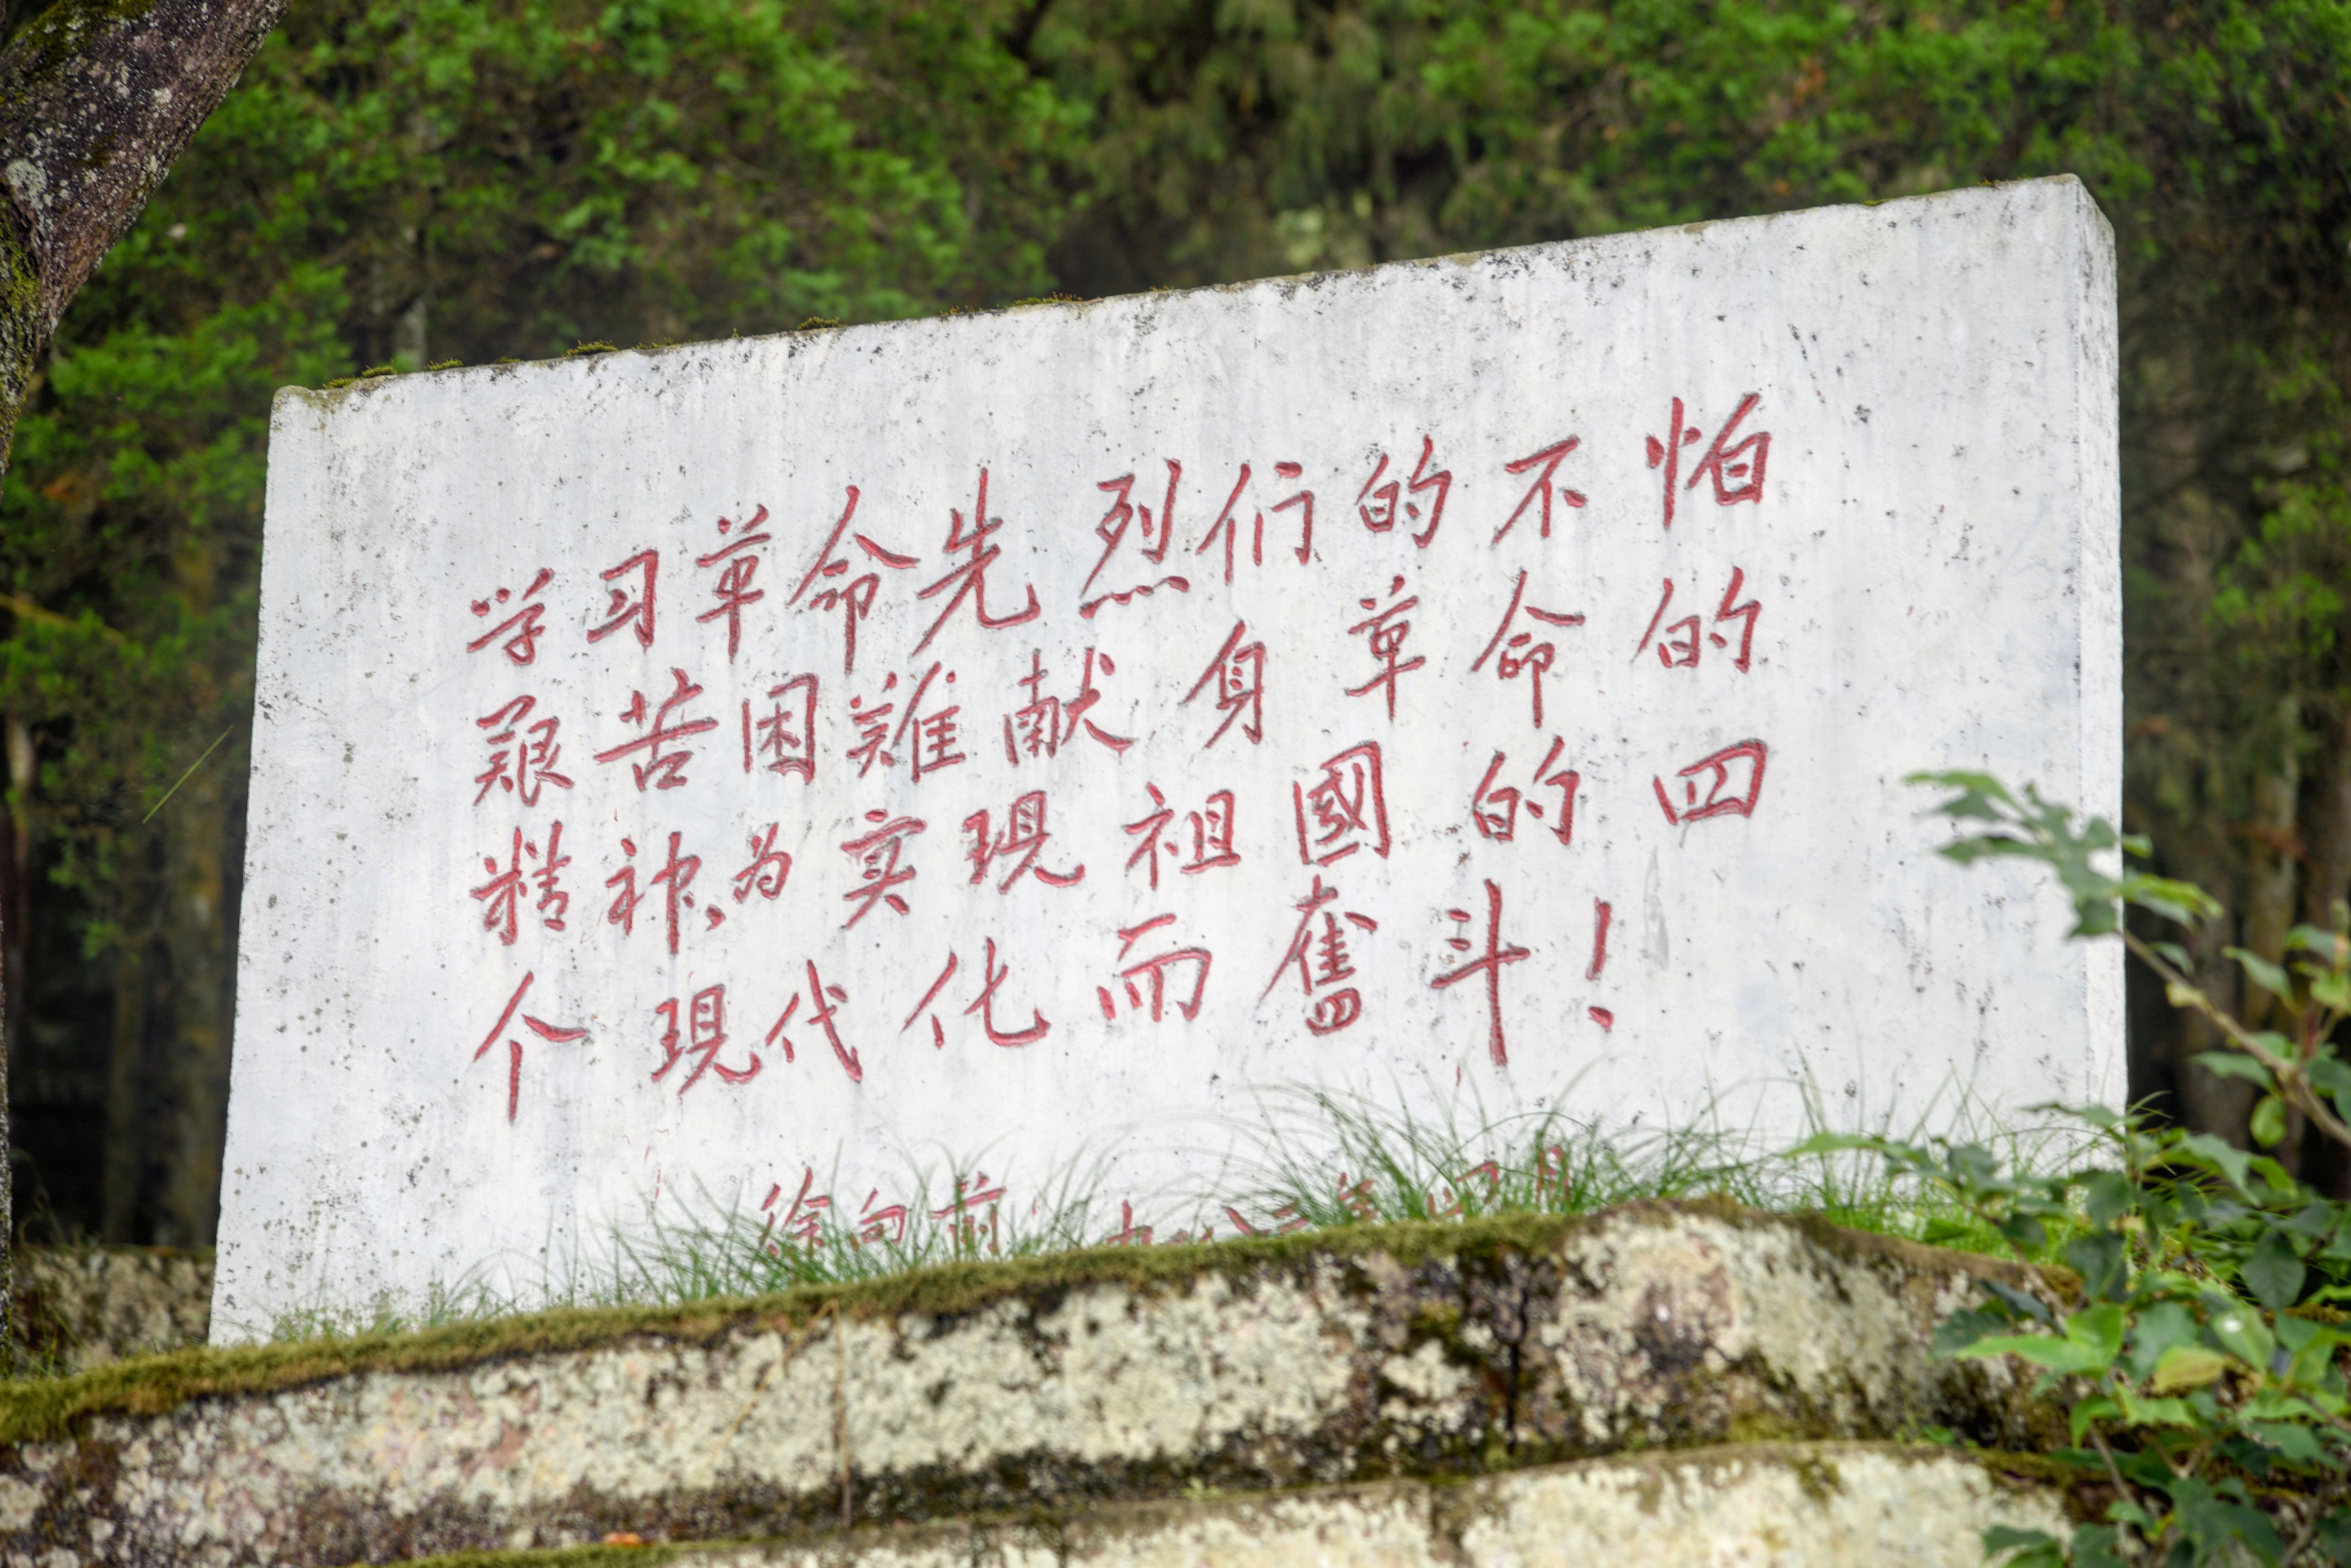 学习革命先烈们的不怕
艰苦困難献身革命的
精神、为实现祖國的四
个现代化而奮斗!
徐向前 一九八三年四月